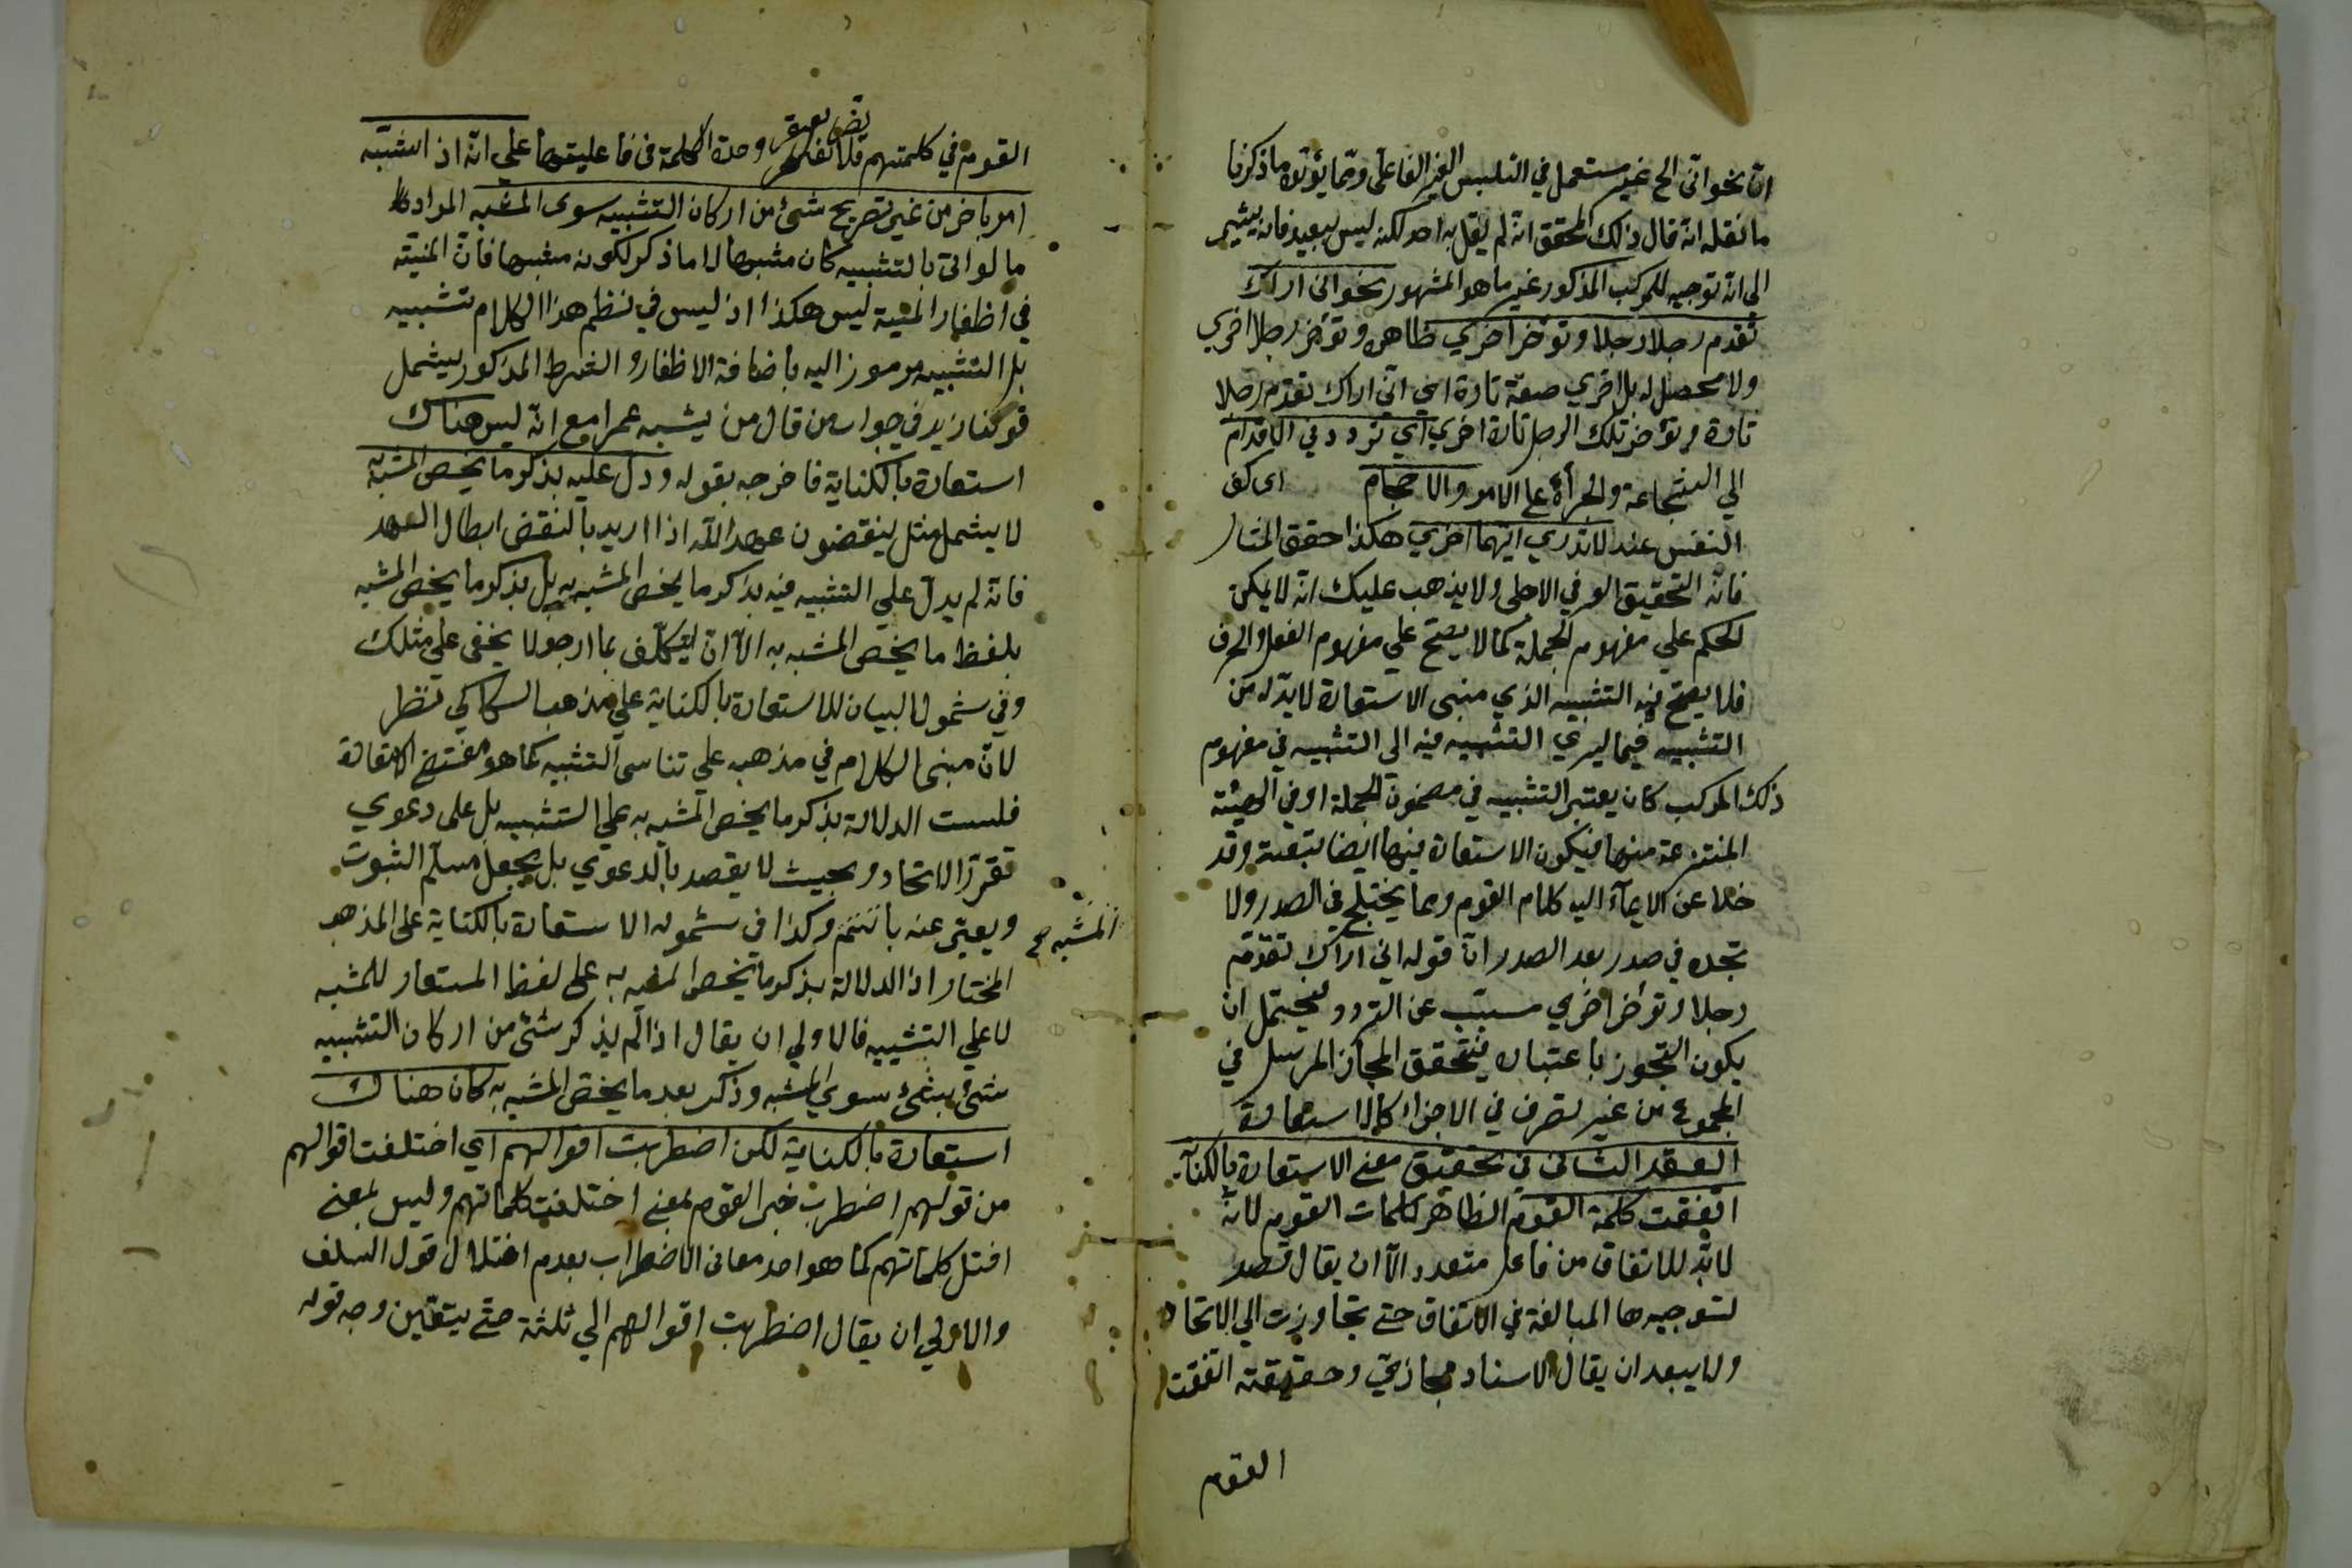 ان نحو انى الخ غير مستعمل في التلبس الغير الفاعلى ومما يؤيد ما ذكرنا
ما نقله انه قال ذلك المحقق انه لم يقل به احد لكنه ليس ببعيد فانه يشير
الى انه توجيه للمركب المذكور غير ما هو المشهور نحو انى اراك
تقدم رجلا رجلا وتؤخر اخرى ظاهره وتؤخر رجلا اخرى
ولا محصل له بل اخرى صفة تارة اي انى اراك تقدم رجلا
تارة وتؤخر تلك الرجل تارة اخرى اي تردد في الاقدام
الي الشجاعة والجرأة على الامر والاحجام اى كف
النفس عنه لا تدرى ايهما احرى هكذا حقق المختار
فانه التحقيق الوفي الاحلى ولا يذهب عليك انه لا يمكن
الحكم علي مفهوم الجملة كما لا يصح علي مفهوم الفعل والحرف
فلا يصح فيه التشبيه الذي مبنى الاستعارة لا بد له من
التشبيه فيما يسرى التشبيه فيه الى التشبيه في مفهوم
ذلك المركب كان يعتبر التشبيه في مضمون الجملة او في الهيئة
المنتزعة منها فيكون الاستعارة فيها ايضا تبعية وقد
خلا عن الايماء اليه كلام القوم ومما يختلج في الصدر ولا
تجده في صدر بعد الصدر ان قوله اني اراك تقدم
رجلا وتؤخر اخرى مسبب عن التردد فيحتمل ان
يكون التجوز باعتباره فيتحقق المجاز المرسل في
المجموع من غير تصرف في الاجزاء كالاستعارة
العقد الثانى في تحقيق معنى الاستعارة بالكناية
اتفقت كلمة القوم الظاهر كلمات القوم لانه
لا بد للاتفاق من فاعل متعدد الا ان يقال قصد
لتوجيهها المبالغة في الاتفاق حتى تجاوزت الى الاتحاد
ولا يبعد ان يقال الاسناد مجازي وحقيقته اتفقت
القوم
القوم في كلمتهم فلا تضر وحدة الكلمة في فاعليتها على انه اذا شبه
امر باخر من غير تصريح بشئ من اركان التشبيه سوى المشبه المراد
ما لو اتى بالتشبيه كان مشبها لا ما ذكر لكونه مشبها فان المنية
في اظفار المنية ليس هكذا اذ ليس في نظم هذا الكلام تشبيه
بل التشبيه مرموز اليه باضافة الاظفار والشرط المذكور يشمل
قولنا زيد في جواب من قال من يشبه عمرا مع انه ليس هناك
استعارة بالكناية فاخرجه بقوله ودل عليه بذكر ما يخص المشبه به
لا يشمل مثل ينقضون عهد الله اذا اريد بالنقض ابطال العهد
فانه لم يدل علي التشبيه فيه بذكر ما يخص المشبه به بل بذكر ما يخص المشبه
بلفظ ما يخص المشبه به الا ان يتكلف بما ارجو لا يخفى على مثلك
وفي شمول البيان للاستعارة بالكناية علي مذهب السكاكي نظر
لان مبنى الكلام في مذهبه علي تناسى التشبيه كما هو مقتضى الاستعارة
فليست الدلالة بذكر ما يخص المشبه به على التشبيه بل على دعوي
تقرر الاتحاد وبحيث لا يقصد بالدعوي بل يجعل مسلم الثبوت
المشبه صح
ويعبر عنه باسم وكذا في شموله الاستعارة بالكناية على المذهب
المختار اذ الدلالة بذكر ما يخص المشبه به على لفظ المستعار للمشبه
لا علي التشبيه فالاولي ان يقال اذا لم يذكر شئ من اركان التشبيه
شئ بشئ سوي المشبه وذكر بعد ما يخص المشبه به كان هناك
استعارة بالكناية لكن اضطربت اقوالهم اي اختلفت اقوالهم
من قولهم اضطرب خبر القوم بمعنى اختلفت كلماتهم وليس بمعنى
اختل كلماتهم كما هو احد معانى الاضطراب بعدم اختلال قول السلف
والاولي ان يقال اضطربت اقوالهم الي ثلثة حتى يتقين وجه قوله